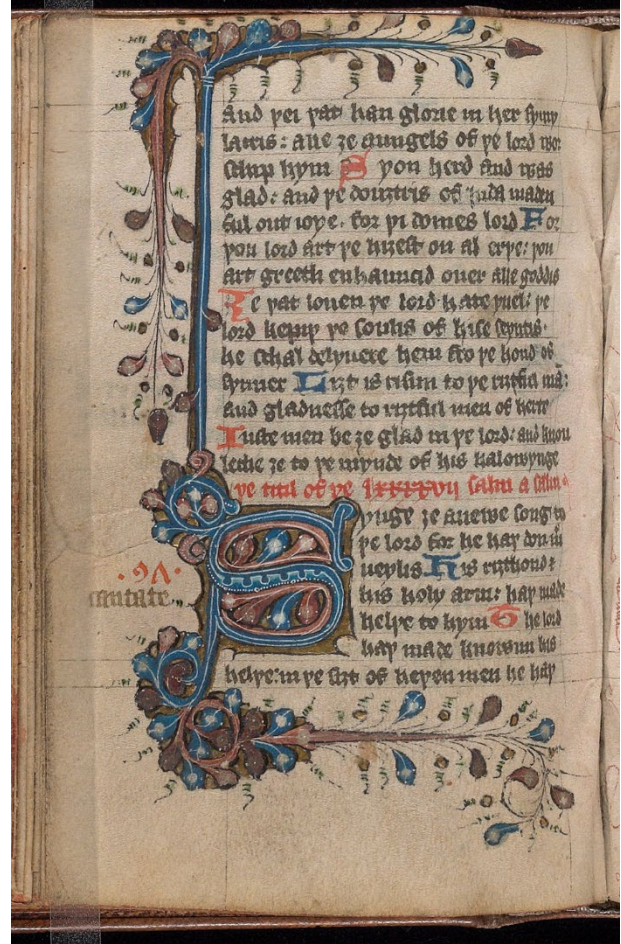 And þei þat han glorie in her symy
lacris: alle ȝe aungels of þe lord wor
schip hym Syon herd and was
glad: and þe douȝtris of iuda maden
ful out ioye. for þi domes lord For
þou lord art þe hiȝest on al erþe: þou
art greetli enhauncid ouer alle goddis
Ȝe þat louen þe lord hate yuel: þe
lord kepiþ þe soulis of hise seyntis.
he schal delyuere hem fro þe hond of
synner Liȝt is risun to þe riȝtful mã:
and gladnesse to riȝtful men of herte
Iuste men be ȝe glad in þe lord: and knou
leche ȝe to þe mynde of his halowynge
þe titil of þe lxxxxvii salm a salm
Synge ȝe a newe song to
þe lord for he haþ don m
ueylis His riȝthond &
his holy arm: haþ made
helpe to hym The lord
haþ made knowun his
helþe: in þe siȝt of heþen men he haþ
97.
cantate